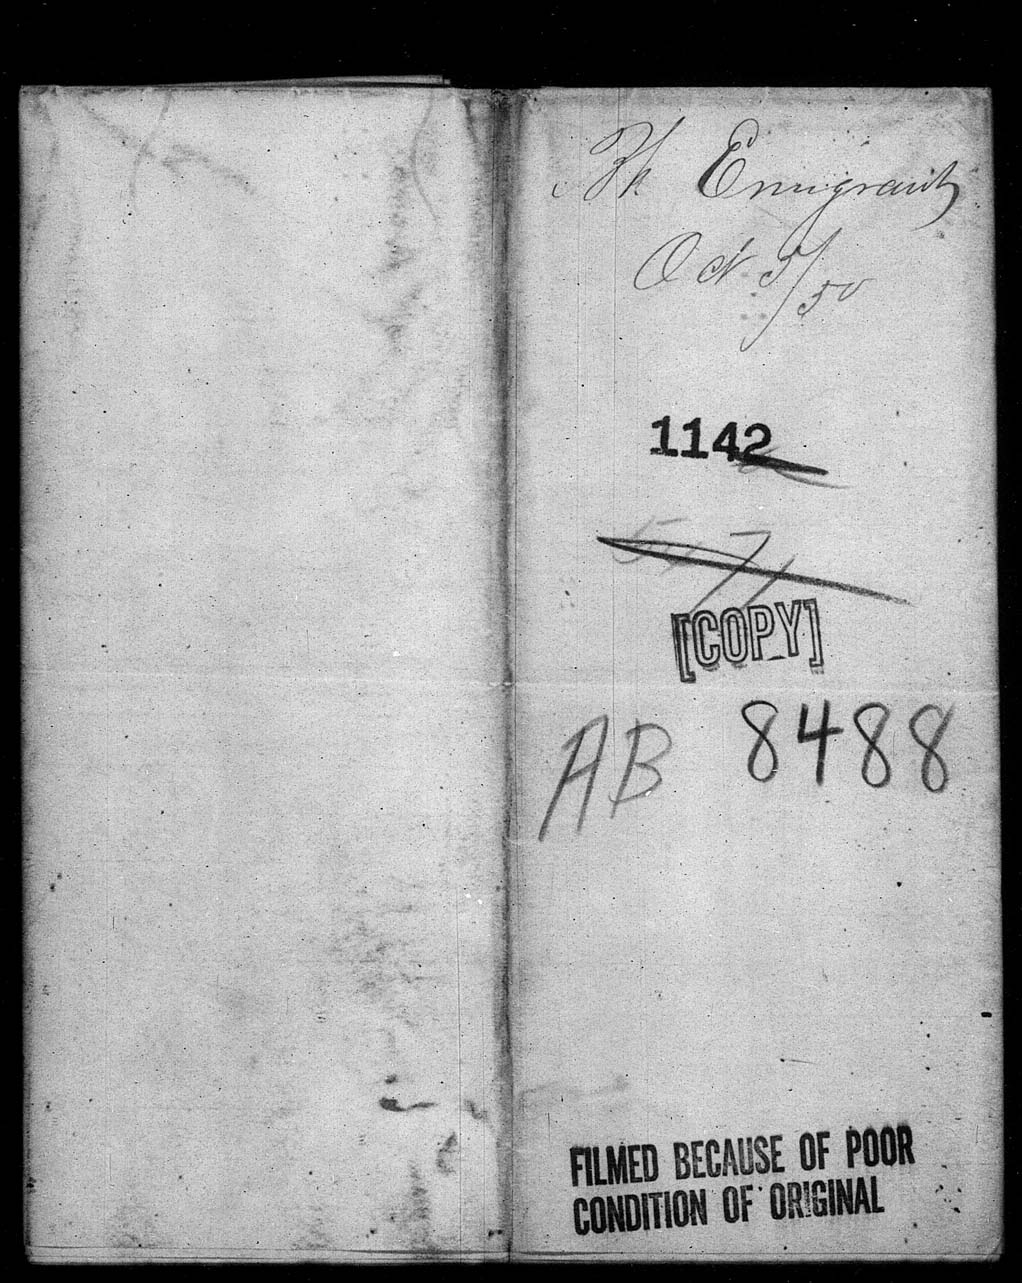 Bk Emigrant
Oct 5/50
1142
5171
[COPY]
AB 8488
FILMED BECAUSE OF POOR
CONDITION OF ORIGINAL